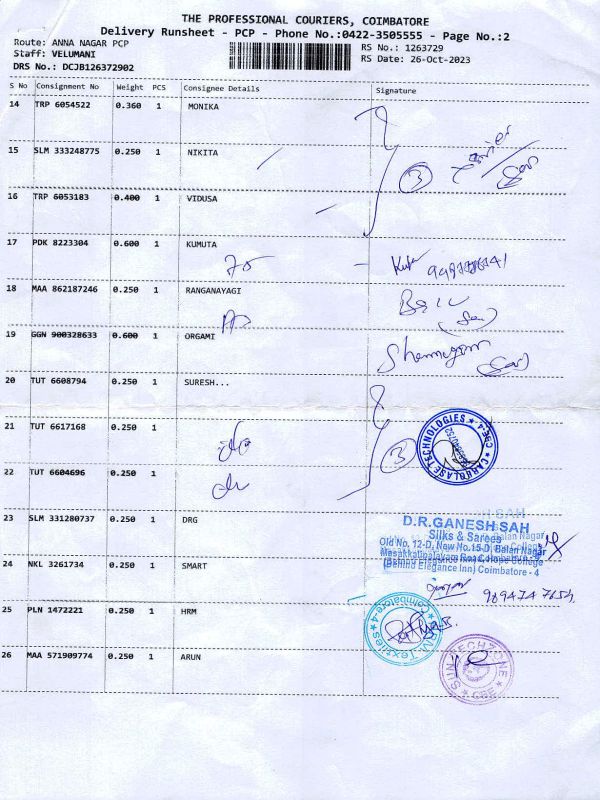 THE PROFESSIONAL COURIERS, COIMBATORE
Delivery Runsheet - PCP - Phone No.:0422-3505555 - Page No.:2
Route: ANNA NAGAR PCP
RS No.: 1263729
Staff: VELUMANI
RS Date: 26-Oct-2023
DRS No.: DCJB126372902
S No Consignment No Weight PCS Consignee Details Signature
14 TRP 6054522 0.360 1 MONIKA
15 SLM 333248775 0.250 1 NIKITA
3
16 TRP 6053183 0.400 1 VIDUSA
17 PDK 8223304 0.600 1 KUMUTA
18 MAA 862187246 0.250 1 RANGANAYAGI
19 GGN 900328633 0.600 1 ORGAMI
20 TUT 6608794 0.250 1 SURESH...
21 TUT 6617168 0.250 1
3
CAREBLASE TECHNOLOGIES ★ CBE-4 ★
22 TUT 6604696 0.250 1
23 SLM 331280737 0.250 1 DRG
D.R.GANESH SAH
Silks & Sarees
Old No. 12-D, New No.15-D, Balan Nagar
Masakkalipalayam Road, Hope College
(Behind Elegance Inn) Coimbatore - 4
24 NKL 3261734 0.250 1 SMART
25 PLN 1472221 0.250 1 HRM
H.R.M. Textiles ★ Coimbatore-4 ★
26 MAA 571909774 0.250 1 ARUN